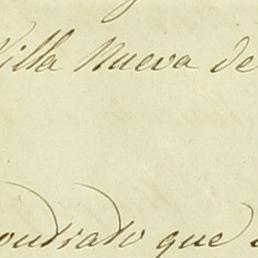 Villa Nueva de
contrato que